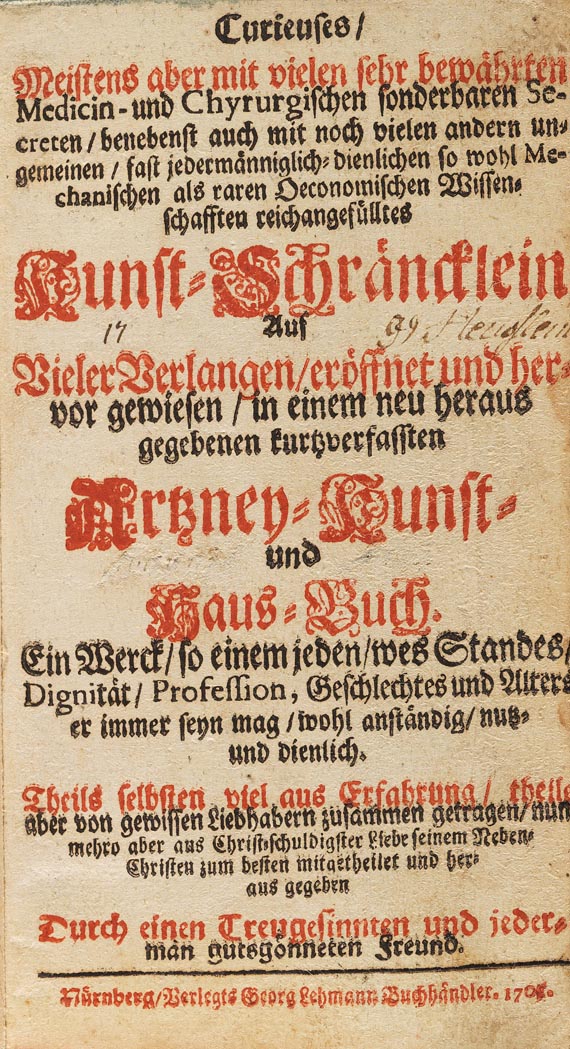 Curieuses/
Meistens aber mit vielen sehr bewährten
Medicin- und Chyrurgischen sonderbaren Se-
creten/ benebenst auch mit noch vielen andern un-
gemeinen/ fast jedermänniglich-dienlichen so wohl Me-
chanischen als raren Oeconomischen Wissen-
schafften reichangefülltes
Kunst-Schräncklein
Auf
17
Vieler Verlangen/eröffnet und her-
vor gewiesen/ in einem neu heraus
gegebenen kurtzverfassten
Artzney-Kunst-
und
Haus-Buch.
Ein Werck/so einem jeden/wes Standes/
Dignität/ Profession, Geschlechtes und Alters
er immer seyn mag/wohl anständig/ nutz-
und dienlich.
Theils selbsten viel aus Erfahrung/ theils
aber von gewissen Liebhabern zusammen getragen/ nun
mehro aber aus Christ-schuldigster Liebe seinem Neben-
Christen zum besten mitgetheilet und her-
aus gegeben
Durch einen Treugesinnten und jeder-
man gutsgönneten Freund.
Nürnberg/Verlegts Georg Lehmann Buchhändler.